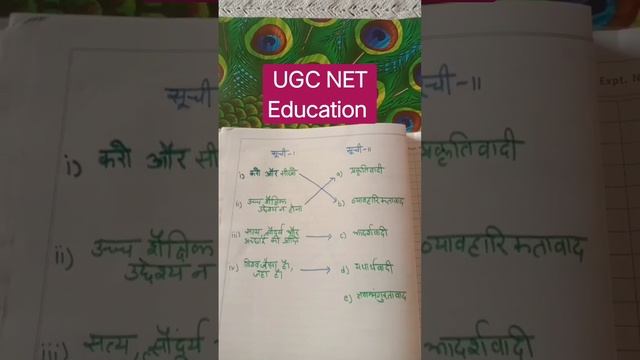 UGC NET
Education
सूची-I सूची-II
i) करो और सीखो a) प्रकृतिवादी
ii) उच्च शैक्षिक उद्देश्य न होना b) व्यावहारिकतावाद
iii) सत्य, सौंदर्य और c) आदर्शवादी
iv) विश्व जैसा है, वैसा है। d) यथार्थवादी
e)
सूची
सूची-II
Expt.
i) करो और
प्रकृतिवादी
ii) उच्च शैक्षिक
उद्देश्य न
व्यावहारिकतावाद
iii) सत्य, सौंदर्य
आदर्शवादी